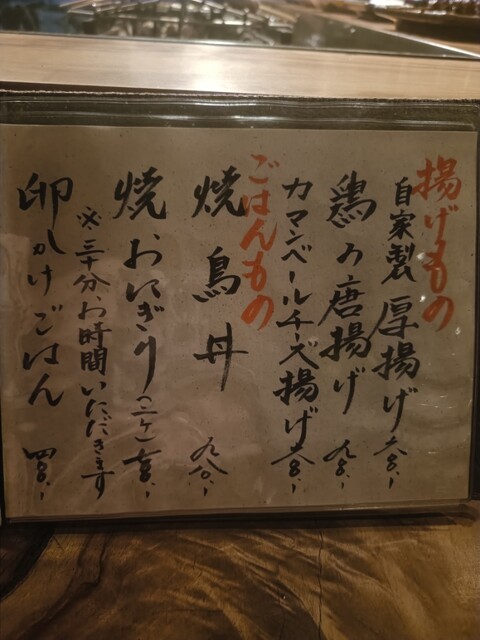 揚げもの
自家製厚揚げ 六八〇、-
鶏の唐揚げ 九八〇、-
カマンベールチーズ揚げ 六八〇、-
ごはんもの
焼鳥丼 九八〇、-
焼おにぎり(二ケ)
※三十分お時間いただきます
卵かけごはん